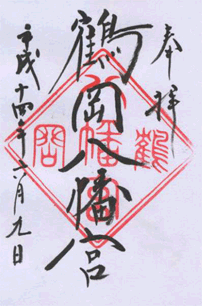 奉拝
鶴岡八幡宮
平成十四年六月九日
鶴
岡
八幡宮